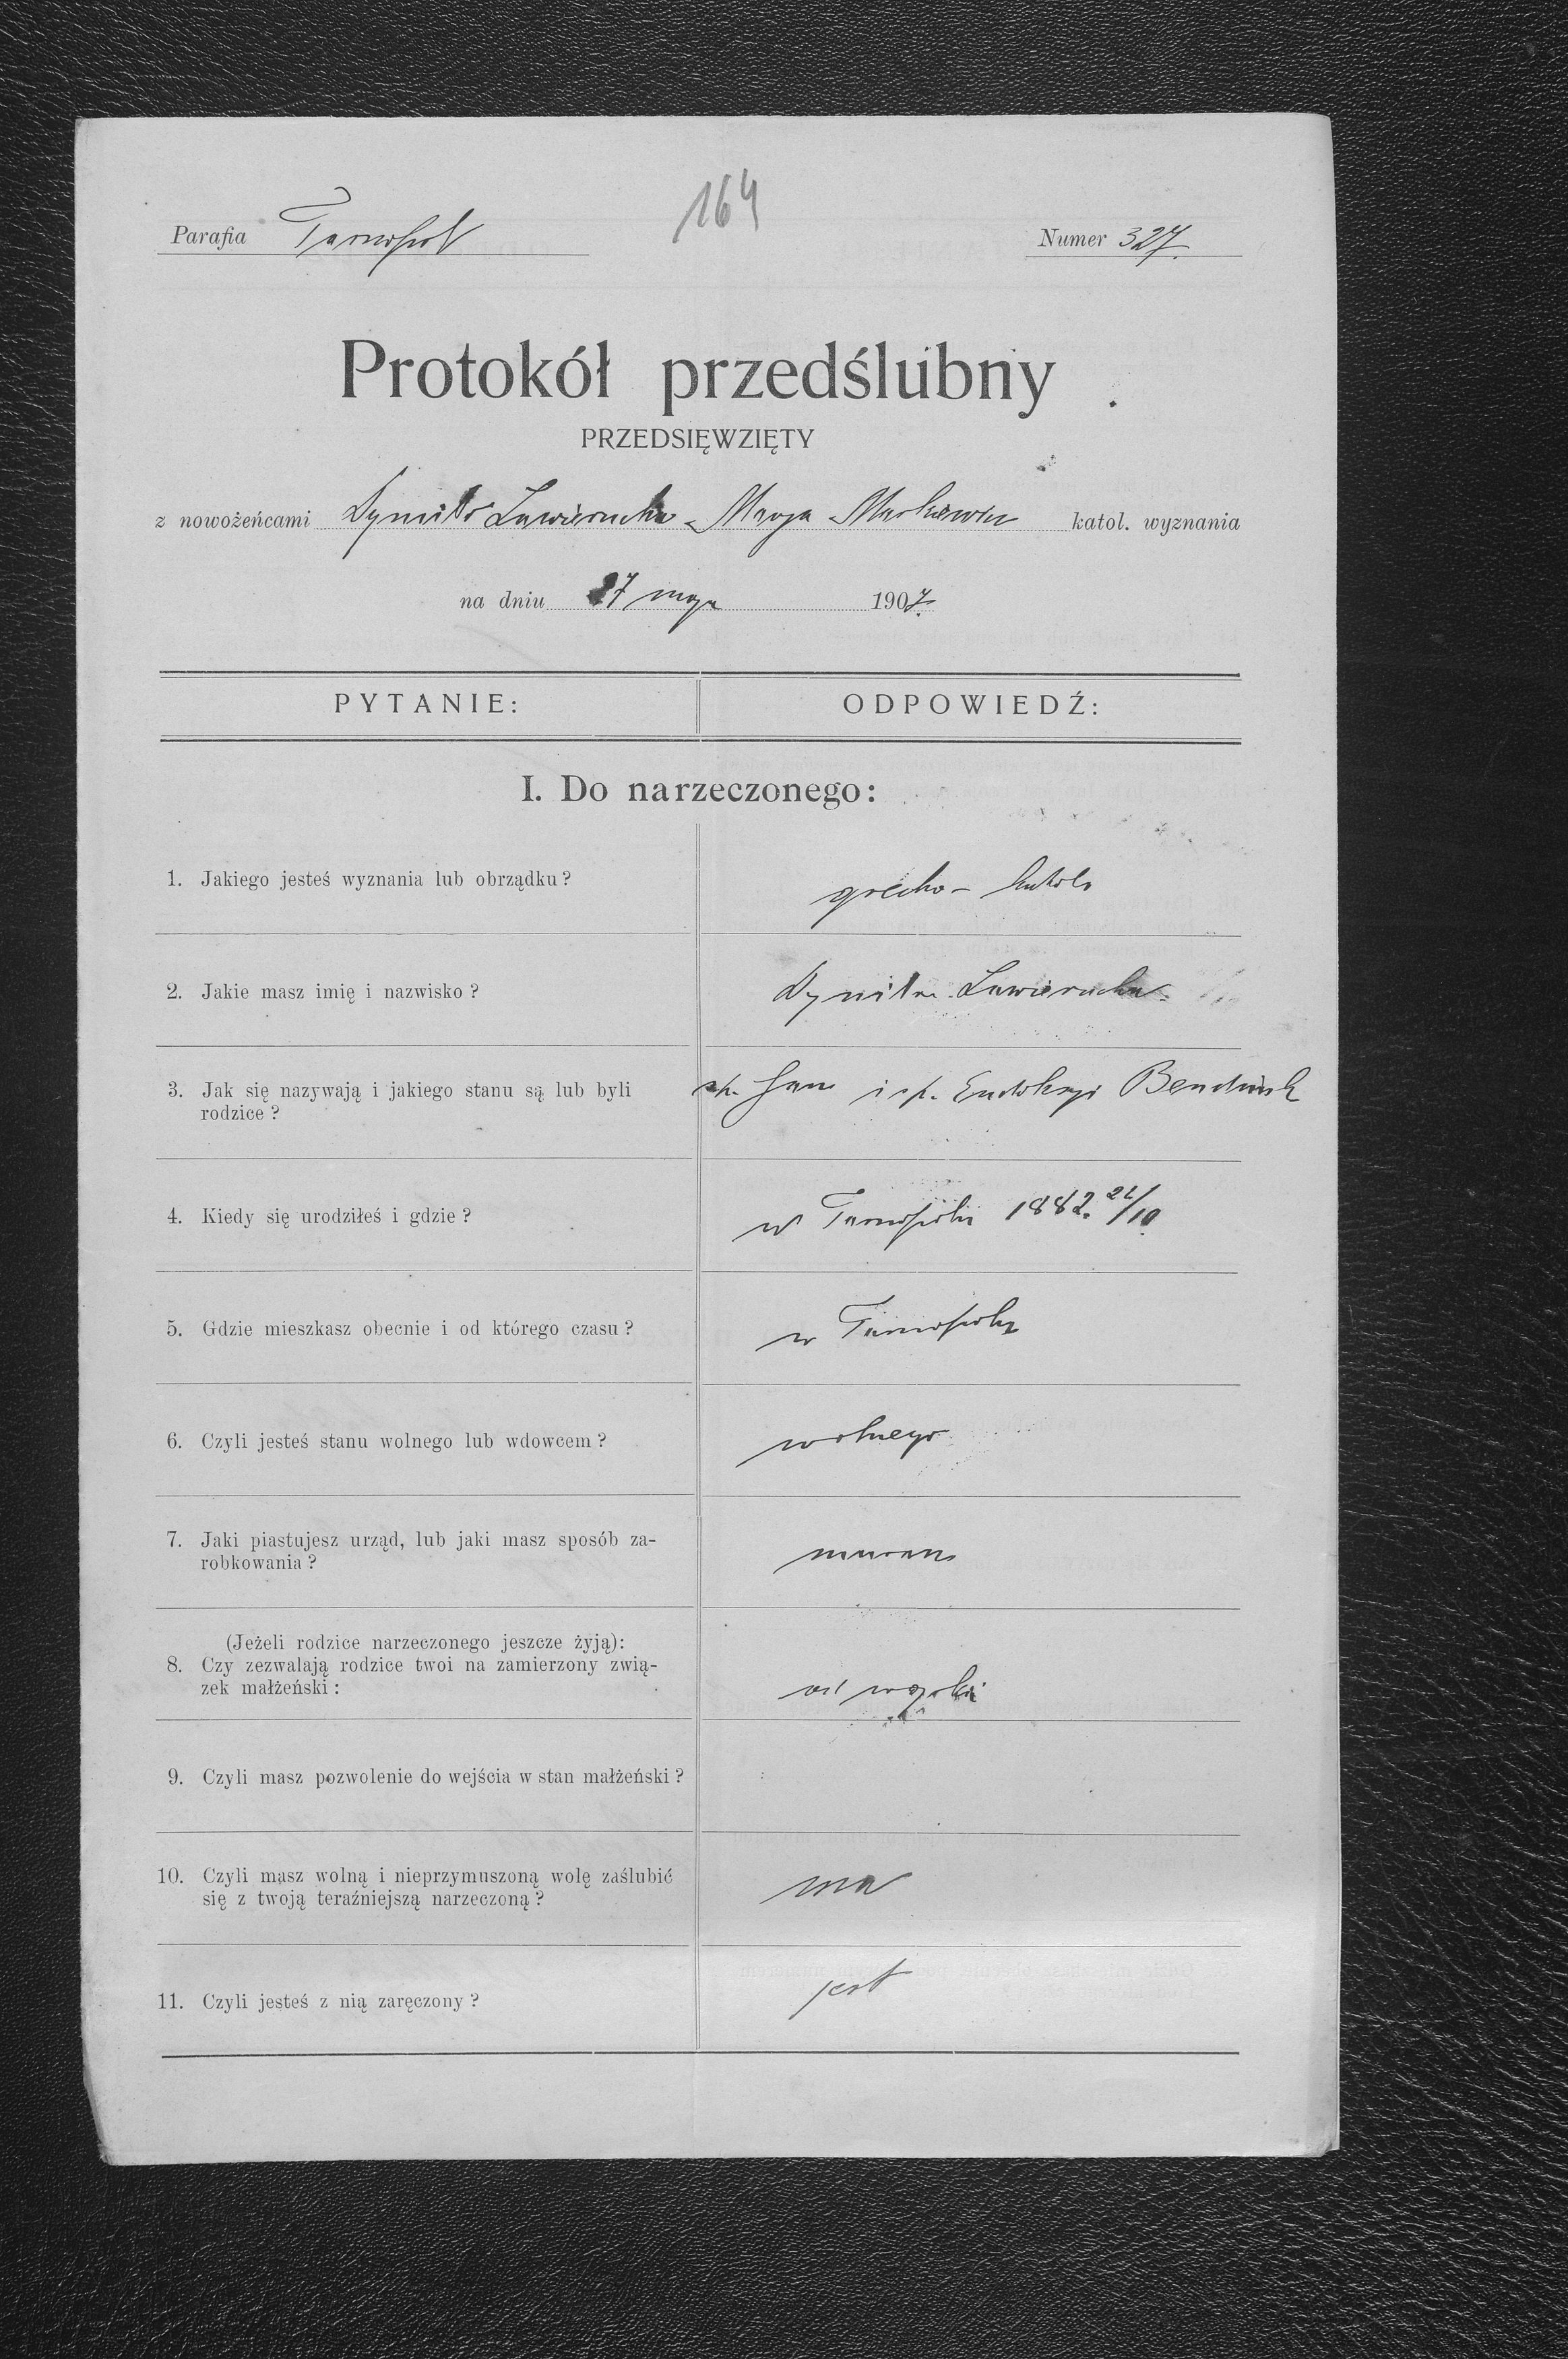 164
Parafia Tarnopol Numer 327.
Protokół przedślubny
PRZEDSIĘWZIĘTY
z nowożeńcami Dymitr Zawierucha Marya Markiewicz katol. wyznania
na dniu 27 maja 1907.
PYTANIE: ODPOWIEDŹ:
I. Do narzeczonego:
1. Jakiego jesteś wyznania lub obrządku? grecko-katol.
2. Jakie masz imię i nazwisko? Dymitr Zawierucha
3. Jak się nazywają i jakiego stanu są lub byli
rodzice?
śp. Jan i śp.
4. Kiedy się urodziłeś i gdzie? w Tarnopolu 1882
5. Gdzie mieszkasz obecnie i od którego czasu? w Tarnopolu
6. Czyli jesteś stanu wolnego lub wdowcem? wolnego
7. Jaki piastujesz urząd, lub jaki masz sposób za-
robkowania?
murarz
(Jeżeli rodzice narzeczonego jeszcze żyją):
8. Czy zezwalają rodzice twoi na zamierzony zwią-
zek małżeński:
9. Czyli masz pozwolenie do wejścia w stan małżeński?
10. Czyli masz wolną i nieprzymuszoną wolę zaślubić
się z twoją teraźniejszą narzeczoną?
ma
11. Czyli jesteś z nią zaręczony? jest